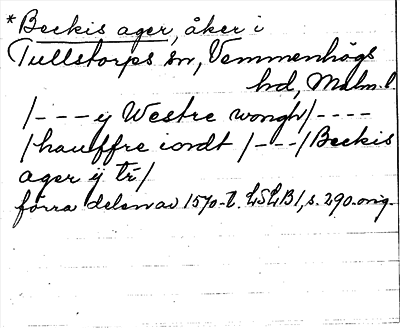 *Beckis ager, åker i
Tullstorps sn, Vemmenhögs
hd, Malm. l.
/--- y Westre wongh/----
/hauffre iordt /---/ Beckis
ager y tr/
förra delen av 1570-t. LSLB1, s. 290. orig.